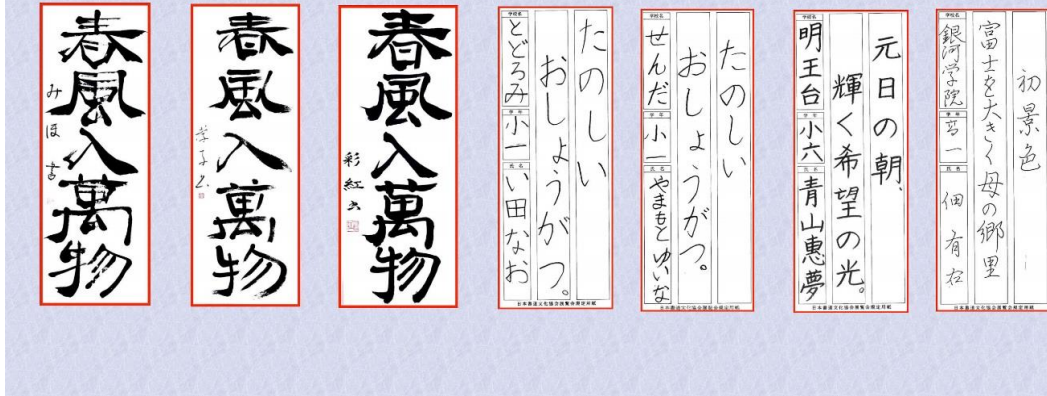 春風入萬物
みほ書
春風入萬物
春風入萬物
彩紅書
たのしい
おしょうがつ。
学校名
とどろみ
学年
小一
氏名
い田なお
日本書道文化協会展覧会規定用紙
たのしい
おしょうがつ。
学校名
せんだ
学年
小一
氏名
やまもとゆいな
日本書道文化協会展覧会規定用紙
元日の朝、
輝く希望の光。
学校名
明王台
学年
小六
氏名
青山惠夢
日本書道文化協会展覧会規定用紙
初景色
富士を大きく母の郷里
学校名
銀河学院
学年
高一
氏名
佃有右